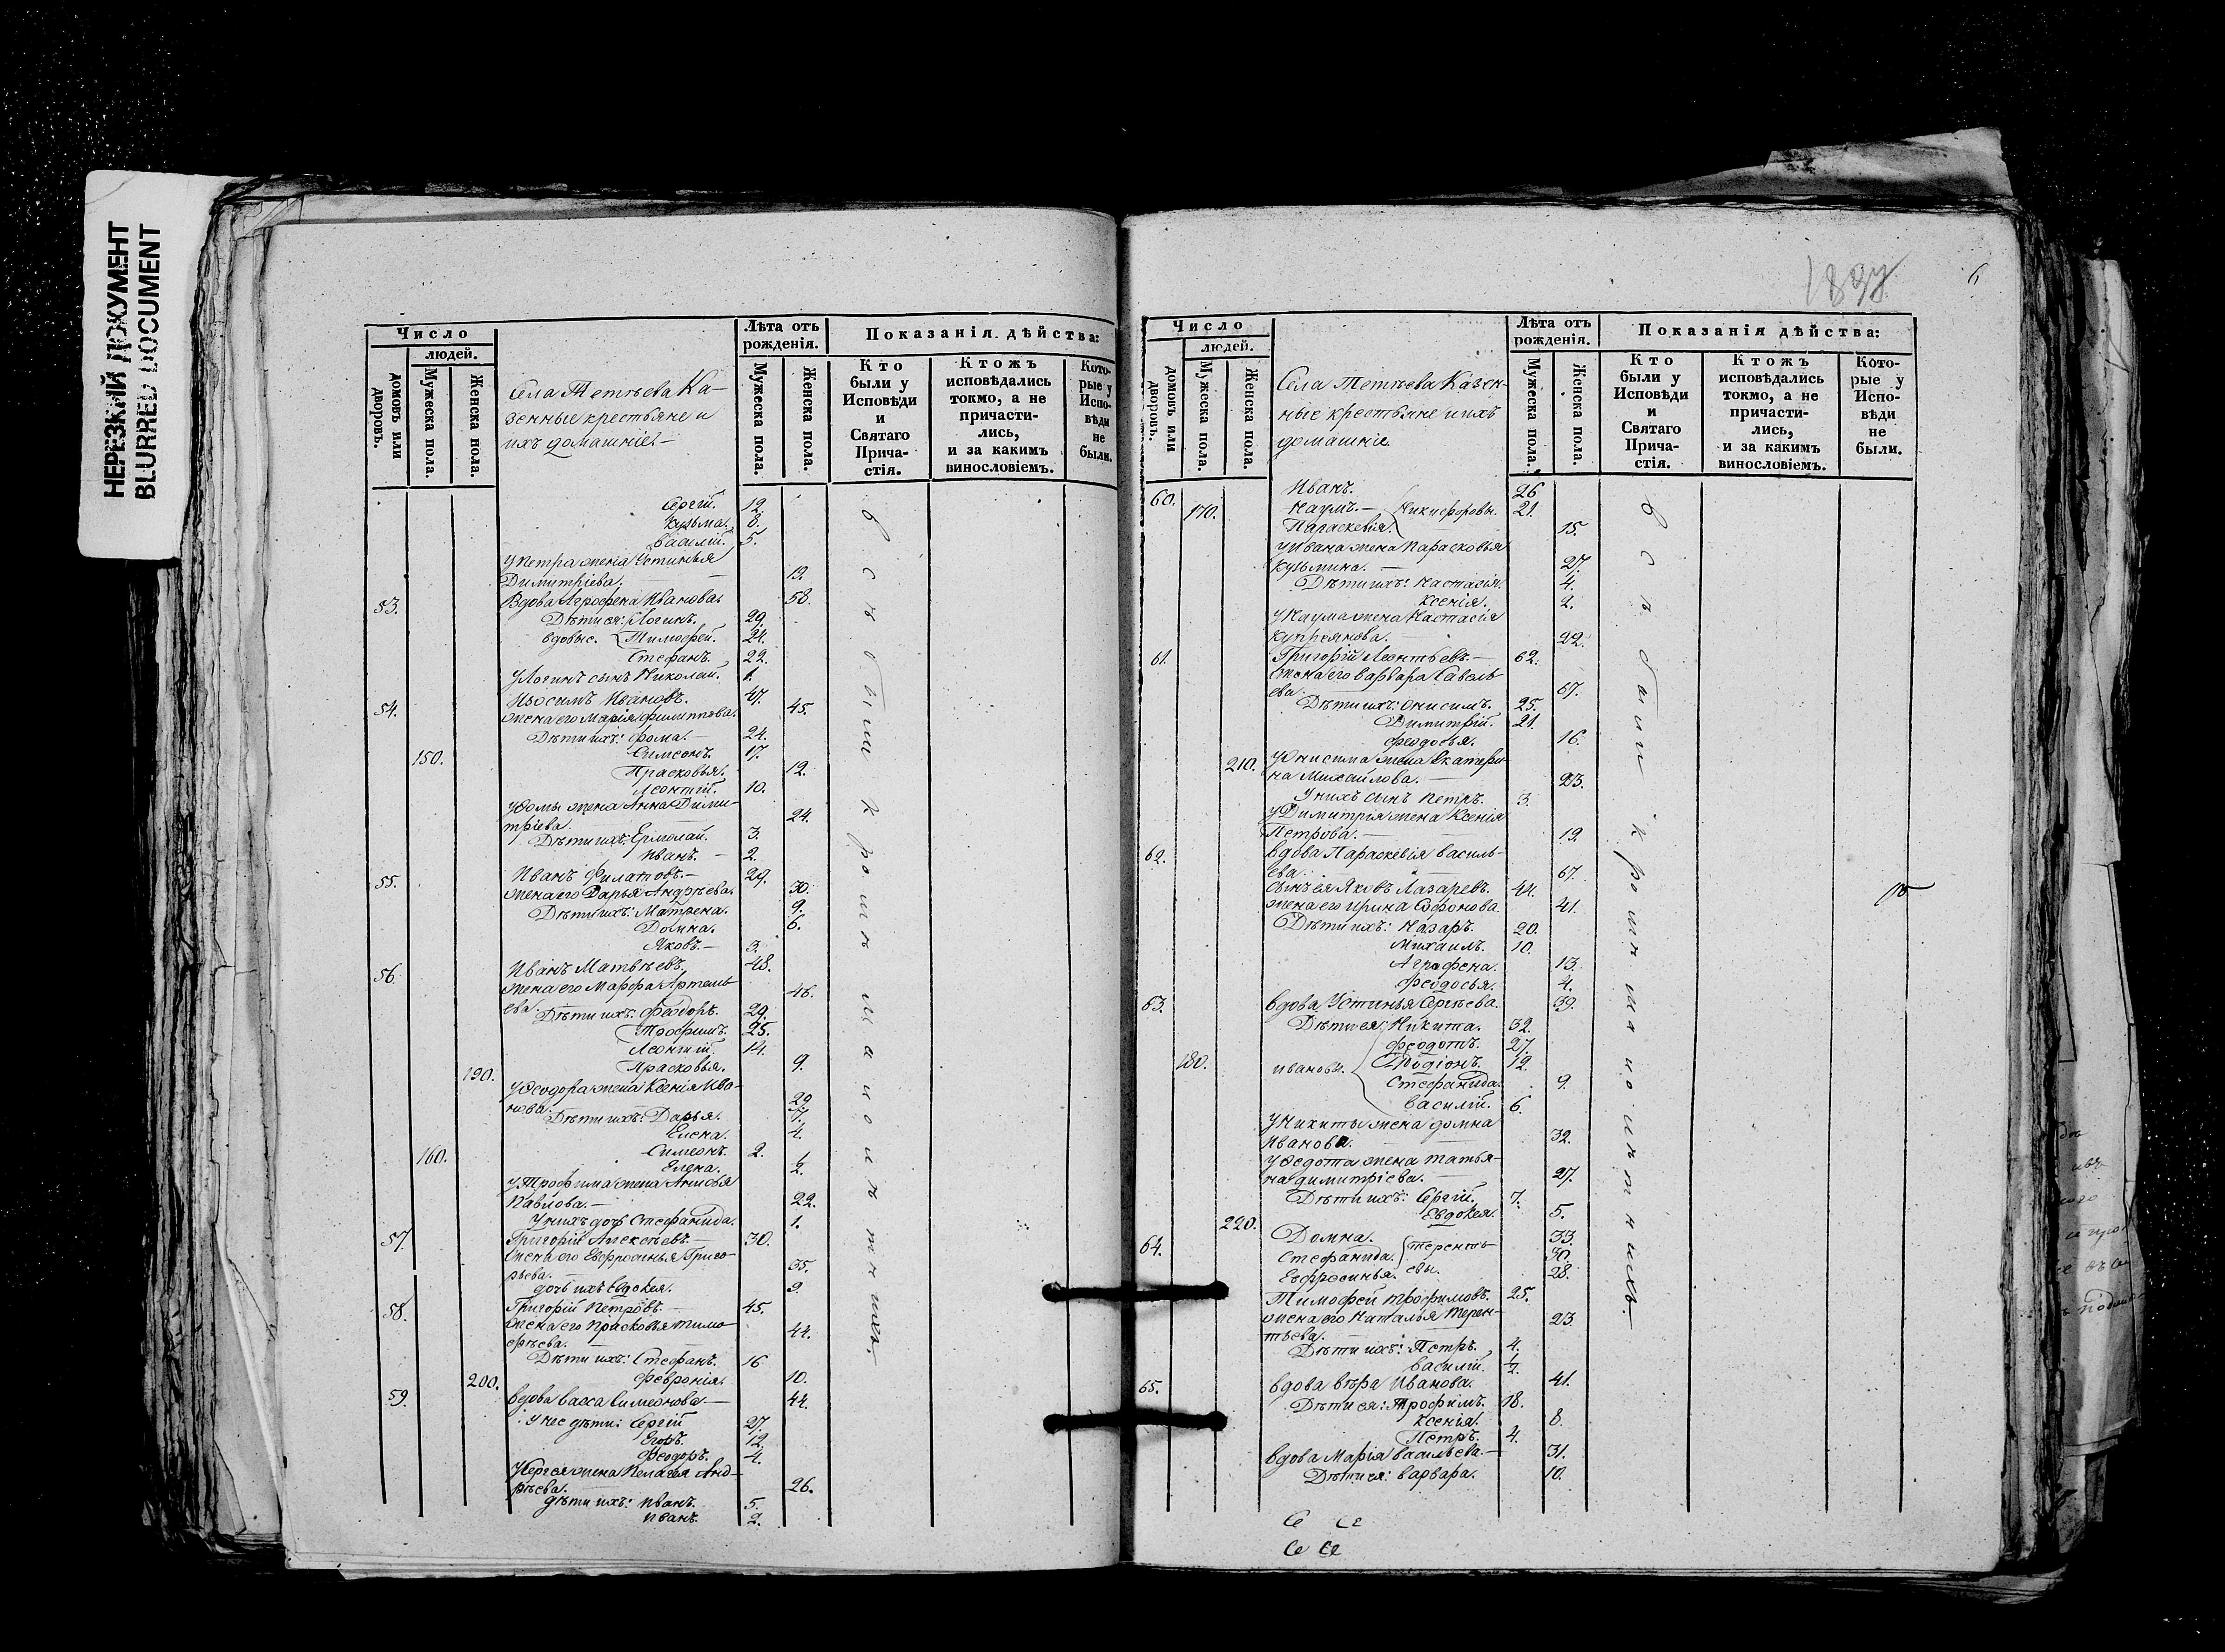 НЕРЕЗКИЙ ДОКУМЕНТ
BLURRED DOCUMENT
Число
людей.
домовъ или дворовъ.
Мужеска пола.
Женска пола.
Села Тетѣева Ка-
зенные крестьяне и
ихъ домашніе.—
Лѣта отъ рожденія.
Мужеска пола.
Женска пола.
Показанія дѣйства:
Кто были у Исповѣди и Святаго Причастія.
Ктожъ исповѣдались токмо, а не причастились, и за какимъ винословіемъ.
Которые у Исповѣди не были.
Сергій. 12.
Кузьма. 8.
Василій. 5.
У Петра жена Устинья
Димитріева. — 19.
53. Вдова Агрофена Иванова. 58.
Дѣти ея: Логинъ. 29.
вдовые. Тимофей. 24.
Стефанъ. 22.
У Логинъ сынъ Николай. 1.
54. Изосимъ Ивановъ. 47.
жена его Марія Филиппова. 45.
Дѣти ихъ: Фома. — 24.
150. Симеонъ. 17.
Прасковья. 12.
Леонтій. 10.
У Фомы жена Анна Дими-
тріева. 24.
Дѣти ихъ: Ермолай. 3.
Иванъ. — 2.
55. Иванъ Филатовъ. — 29.
жена его Дарья Андрѣева. 30.
Дѣти ихъ: Матрена. 9.
Домна. 6.
Яковъ. — 3.
56. Иванъ Матвѣевъ. 48.
жена его Марфа Артемь
ева. 46.
Дѣти ихъ: Феодоръ. 29.
Трофимъ. 25.
Леонтій. 14.
190. Прасковья. 9.
У Феодора жена Ксенія Ива-
нова. 29.
Дѣти ихъ: Дарья. 7.
Елена. 4.
160. Симеонъ. 2.
Елена. ½.
У Трофима жена Анисья
Павлова. — 22.
У нихъ дочь Стефанида. 1.
57. Григорій Алексѣевъ. — 30.
жена его Евфросинья Григо-
рьева. 35.
дочь ихъ Евдокея. 9.
58. Григорій Петровъ. — 45.
жена его Прасковья Тимо
фѣева. 44.
Дѣти ихъ: Стефанъ. 16
200. Февронія. 10.
59. Вдова Васса Симеонова. — 44.
У нее дѣти: Сергій 27.
Егоръ. 12.
Феодоръ. 4.
У Сергея жена Пелагея Анд-
рѣева. 26.
дѣти ихъ: Иванъ. 5.
Иванъ. 2.
всѣ были кромѣ малолѣтнихъ.
6
Число
людей.
домовъ или дворовъ.
Мужеска пола.
Женска пола.
Села Тетѣева Казен-
ные крестьяне и ихъ
домашніе.
Лѣта отъ рожденія.
Мужеска пола.
Женска пола.
Показанія дѣйства:
Кто были у Исповѣди и Святаго Причастія.
Ктожъ исповѣдались токмо, а не причастились, и за какимъ винословіемъ.
Которые у Исповѣди не были.
60. Иванъ. 26
170. Наумъ. — Никифоровы. 21.
Параскевія. 15.
У Ивана жена Парасковья
Кузьмина. — 27.
Дѣти ихъ: Настасія. 4.
Ксенія. 2.
У Наума жена Настасія
Купреянова. 22.
61. Григорій Леонтьевъ. — 62.
жена его Варвара Савель
ева. 67.
Дѣти ихъ: Онисимъ. 25.
Димитрій. 21.
Феодосья. 16.
210. У Онисима жена Екатери
на Михайлова. — 23.
У нихъ сынъ Петръ. 3.
У Димитрія жена Ксенія
Петрова. — 19.
62. Вдова Параскевія Василь-
ева. — 67.
сынъ ея Яковъ Лазаревъ. 44.
жена его Ирина Софонова. 41.
Дѣти ихъ: Назаръ. 20.
Михаилъ. 10.
Аграфена. 13.
Феодосья. 4.
63. Вдова Устинья Сергѣева. 39.
Дѣти ея: Никита. 32.
Феодотъ. 27.
180. Ивановы. Родіонъ. 12.
Стефанида. 9.
Василій. 6.
У Никиты жена Домна
Иванова. 32.
У Федота жена Татья-
на Димитріева. — 27.
Дѣти ихъ: Сергій. 7.
220. Евдокея. 5.
64. Домна. 33.
Стефанида. Теренть 30.
Евфросинья. евы. 28.
Тимофей Трофимовъ. 25.
жена его Наталья Терен-
тьева. 23
Дѣти ихъ: Петръ. 4.
Василій. ½.
65. Вдова Вѣра Иванова. 41.
Дѣти ея: Трофимъ. 18.
Ксенья. 8.
Петръ. 4.
Вдова Марія Васильева. — 31.
Дѣти ея: Варвара. 10.
всѣ были кромѣ малолѣтнихъ.—
Се Се
Се Се